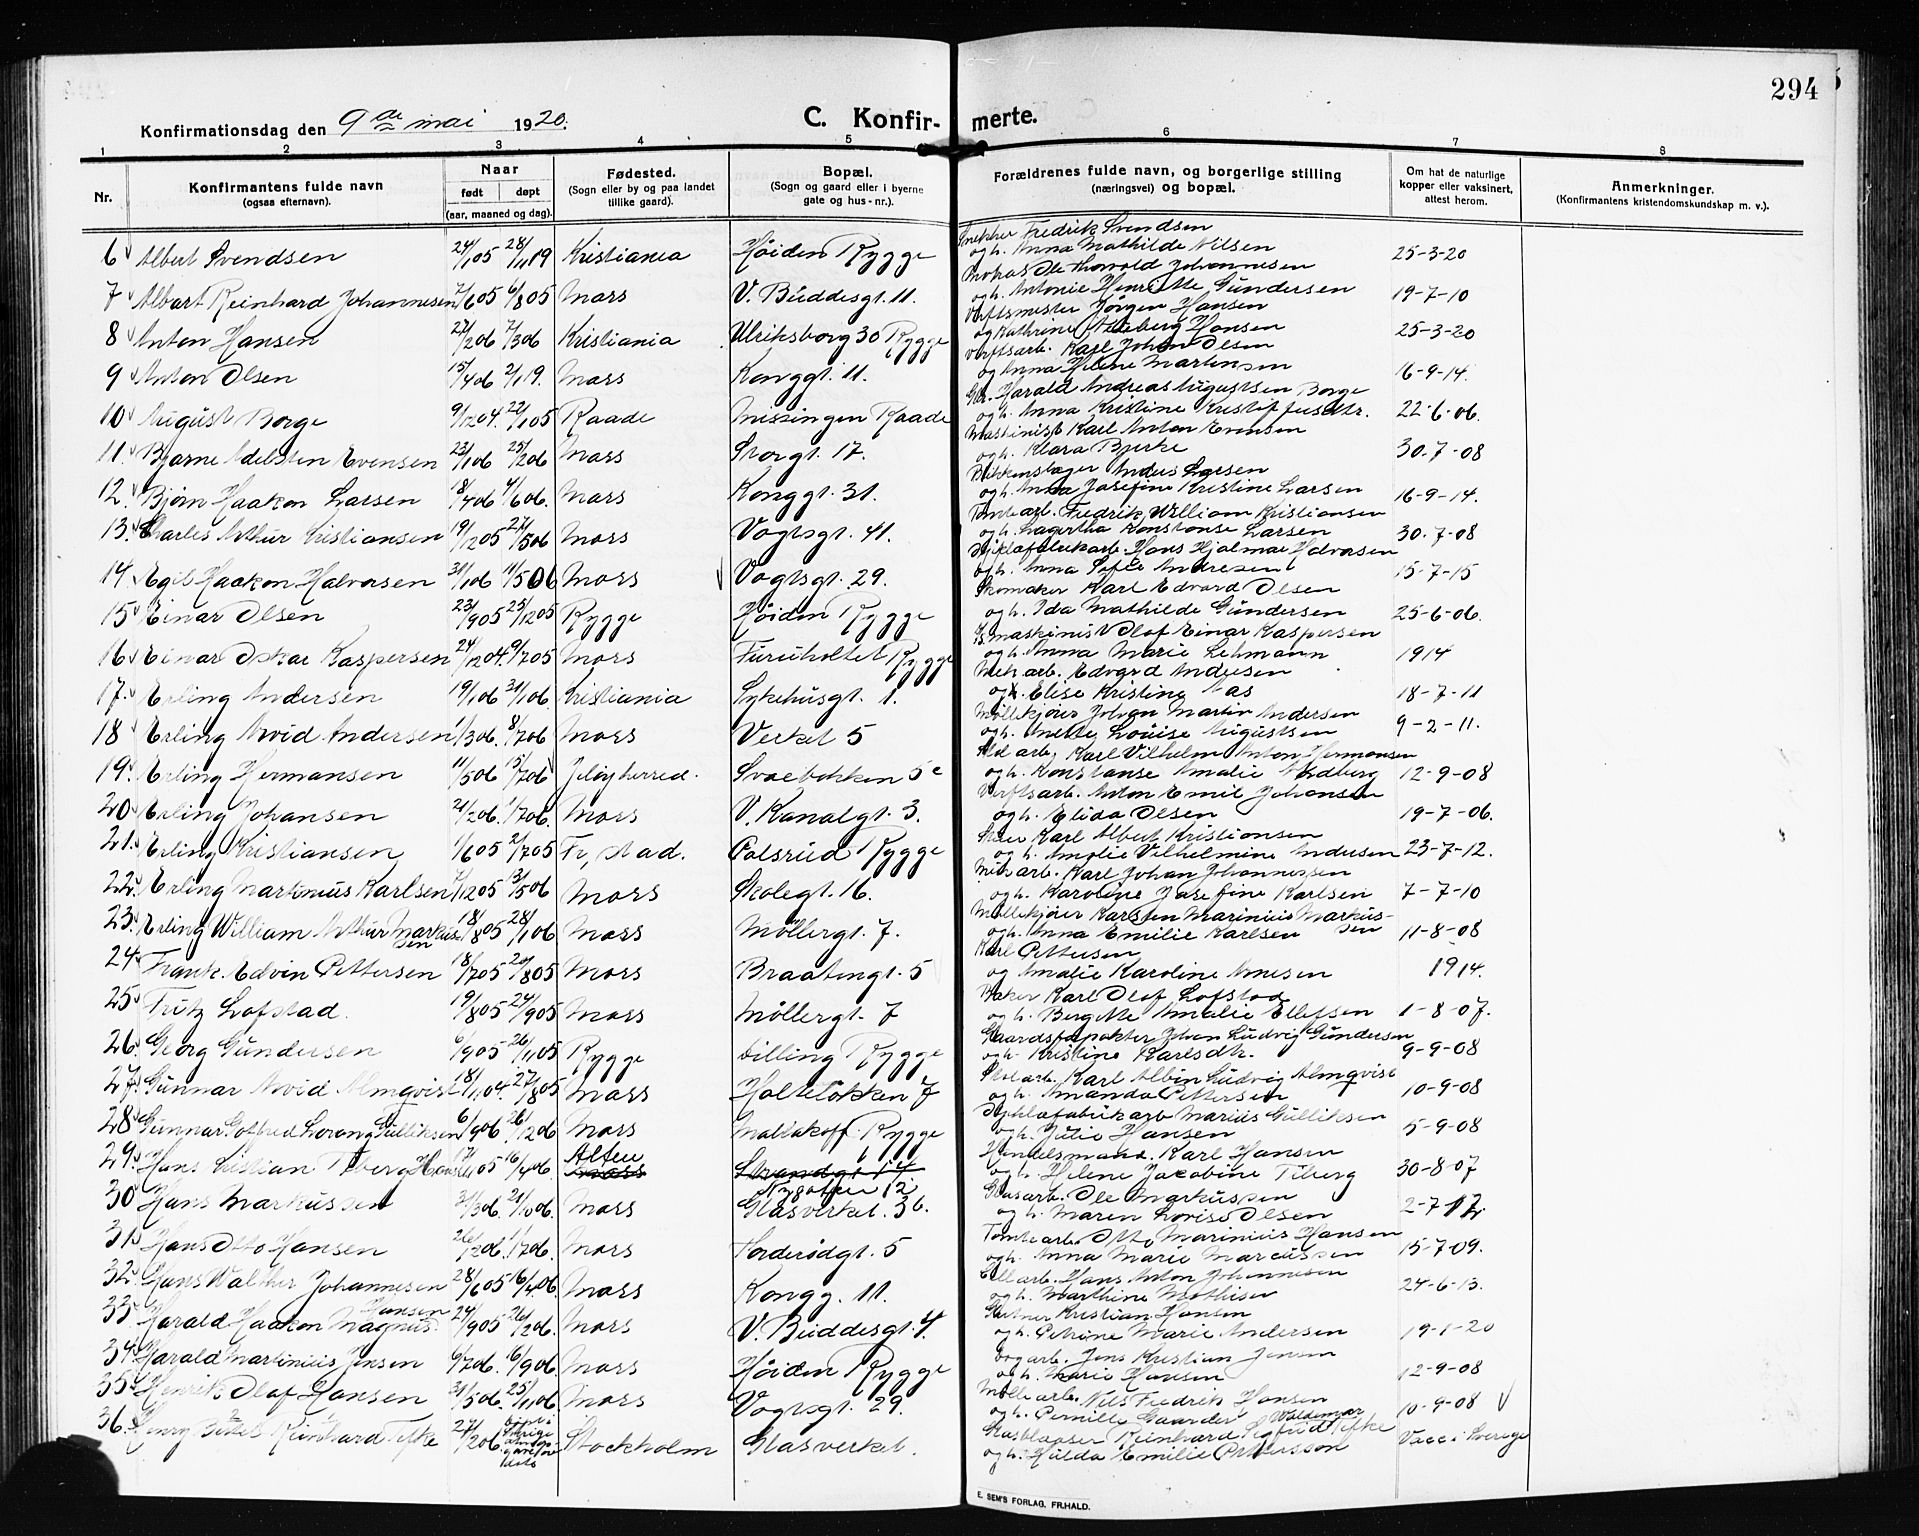 294
Konfirmationsdag den 9de mai 1920.
C. Konfirmerte.
1 2 3 4 5 6 7 8
Nr. Konfirmantens fulde navn (ogsaa efternavn). Naar født døpt (aar, maaned og dag). Fødested. (Sogn eller by og paa landet tillike gaard). Bopæl. (Sogn og gaard eller i byerne gate og hus-nr.). Forældrenes fulde navn, og borgerlige stilling (næringsvei) og bopæl. Om hat de naturlige kopper eller vaksinert, attest herom. Anmerkninger. (Konfirmantens kristendomskundskap m. v.).
Snekker Fredrik Svendsen
6 Albert Svendsen 24/1 05 28/11 19 Kristiania Høiden Rygge og h. Anna Mathilde Nilsen 25-3-20
Ole Thorvald Johannesen
7 Albert Reinhard Johannesen 7/6 05 6/8 05 Moss V. Buddesgt. 11. og h. Antonie Henriette Gundersen 19-7-10
Verftsmester Jørgen Hansen
8 Anton Hansen 22/2 06 7/3 06 Kristiania Ulriksborg 30 Rygge og Kathrine Hansen 25-3-20
Verftsarb. Karl Johan Olsen
9 Anton Olsen 15/4 06 2/1 19. Moss Konggt. 11. og Anna Helene Martinsen 16-9-14.
Harald Andreas Augustsen Borge
10 August Borge 9/12 04. 22/1 05 Raade Missingen Raade og h. Anna Kristine Kristoffersdtr. 22-6-06.
Maskinist Karl Anton Evensen
11. Bjarne Adelsten Evensen 23/1 06 25/2 06 Moss Storgt. 17. og h. Klara Bjerke 30-7-08
Anders Larsen
12. Bjørn Haakon Larsen 18/4 06 4/6 06. Moss Konggt. 31. og h. Anna Josefine Kristine Larsen 16-9-14.
Tomtearb. Fredrik William Kristiansen
13. Charles Arthur Kristiansen 19/12 05 27/5 06 Moss Vogtsgt. 41. og h. Lagertha Konstanse Larsen 30-7-08
Hans Hjalmar Halvorsen
14 Egil Haakon Halvorsen 31/1 06 11/5 06 Moss Vogtsgt. 29. og h. Anna Sofie Andresen 15-7-15
Skomaker Karl Edvard Olsen
15 Einar Olsen 23/9 05 25/12 05 Rygge Høiden Rygge og h. Ida Mathilde Gundersen 25-6-06.
maskinist Olaf Einar Kaspersen
16 Einar Oskar Kaspersen 24/12 04. 9/7 05 Moss Furuholtet Rygge og h. Anna Marie Lehmann 1914
Mek arb. Edvard Andersen
17. Erling Andersen 19/1 06 31/1 06. Kristiania Sykehusgt. 1. og h. Elise Kristine Aas 18-7-11
Møllekjører Johan Martin Andersen
18 Erling Arvid Andersen 1/3 06. 8/7 06 Moss Verket 5 og h. Anette Louise Augustsen 9-2-11.
Karl Vilhelm Anton Hermansen
19. Erling Hermansen 11/5 06 15/7 06 Jeløy herred. Svaebakken 5c og h. Konstanse Amalie Nordberg 12-9-08
Verftsarb. Anton Emil Johansen
20 Erling Johansen 21/2 06. 1/7 06. Moss V. Kanalgt. 3. og h. Elida Olsen 19-7-06.
Karl Albert Kristiansen
21. Erling Kristiansen 1/6 05 2/7 05 Fr. stad. Carlsrud Rygge og h. Amalie Vilhelmine Andersen 23-7-12.
Mek arb. Karl Johan Johannessen
22. Erling Martinius Karlsen 7/12 05 13/5 06 Moss Skolegt. 16. og h. Karoline Josefine Karlsen 7-7-10
Møllekjører Karsten Marinius Markussen
23. Erling William Arthur Markussen 18/8 05 28/1 06 Moss Møllergt. 7. og h. Anna Emilie Karlsen 11-8-08
Karl Pettersen
24 Frank Edvin Pettersen 18/7 05 20/8 05 Moss Braatengt. 5 og Amalie Karoline Arnesen 1914.
Baker Karl Olaf Lofstad
25 Fritz Lofstad. 19/8 05 24/9 05 Moss Møllergt. 7 og h. Bergitte Amalie Ellefsen 1-8-07.
Gaardsforpakter Johan Ludvig Gundersen
26. Georg Gundersen 6/9 05 26/11 05 Rygge Dilling Rygge og h. Kristine Karlsdtr. 9-9-08
Karl Albin Ludvig Almqvist
27. Gunnar Arvid Almqvist 18/11 04. 27/8 05 Moss Holteløkken 7 og h. Amanda Pettersen 10-9-08
Marius Gulliksen
28 Gunnar Gotfred Lorang Gulliksen 6/9 06. 26/12 06 Moss Mallakoff Rygge og h. Julie Hansen 5-9-08
Handelsmand. Karl Hansen
29. Hans Kristian Tiberg Hansen 17/11 05 16/4 06. Alten Moss Strandgt 14 Nygaten 12 og h. Helene Jacobine Tiberg 30-8-07
Glasarb. Ole Markussen
30 Hans Markussen 31/3 06. 21/10 06. Moss Glasverket. 36. og h. Maren Lovise Olsen 2-7-12.
Tomtearb. Otto Marinius Hansen
31. Hans Otto Hansen 26/2 06. 1/7 06. Moss Torderødgt. 5 og h. Anna Marie Marcussen 15-7-09.
Hans Anton Johannesen
32. Hans Walther Johannesen 28/6 05 16/4 06. Moss Kongg. 11. og h. Marthine Mathisen 24-6-13.
Gartner Kristian Hansen
33. Harald Haakon Magnus Hansen 24/9 05 26/2 06. Moss V. Buddesgt. 4. og h. Petrine Marie Andersen 19-1-20
Jens Kristian Jensen
34 Harald Martinius Jensen 6/7 06. 16/9 06 Moss Høiden Rygge og h. Marie Hansen 12-9-08
Møllearb. Nils Fredrik Hansen
35. Henrik Olaf Hansen 31/5 06. 25/11 06 Moss Vogtsgt. 29. og h. Pernille Gaarder 10-9-08
Glasblaaser Reinhard Sigfrid Waldemar Tefke
36. Henry Reinhard Tefke 27/2 06. Stockholm Glasverket. og h. Hulda Emilie Pettersson Vacc i Sverige
E. SEM'S FORLAG, FR.HALD.